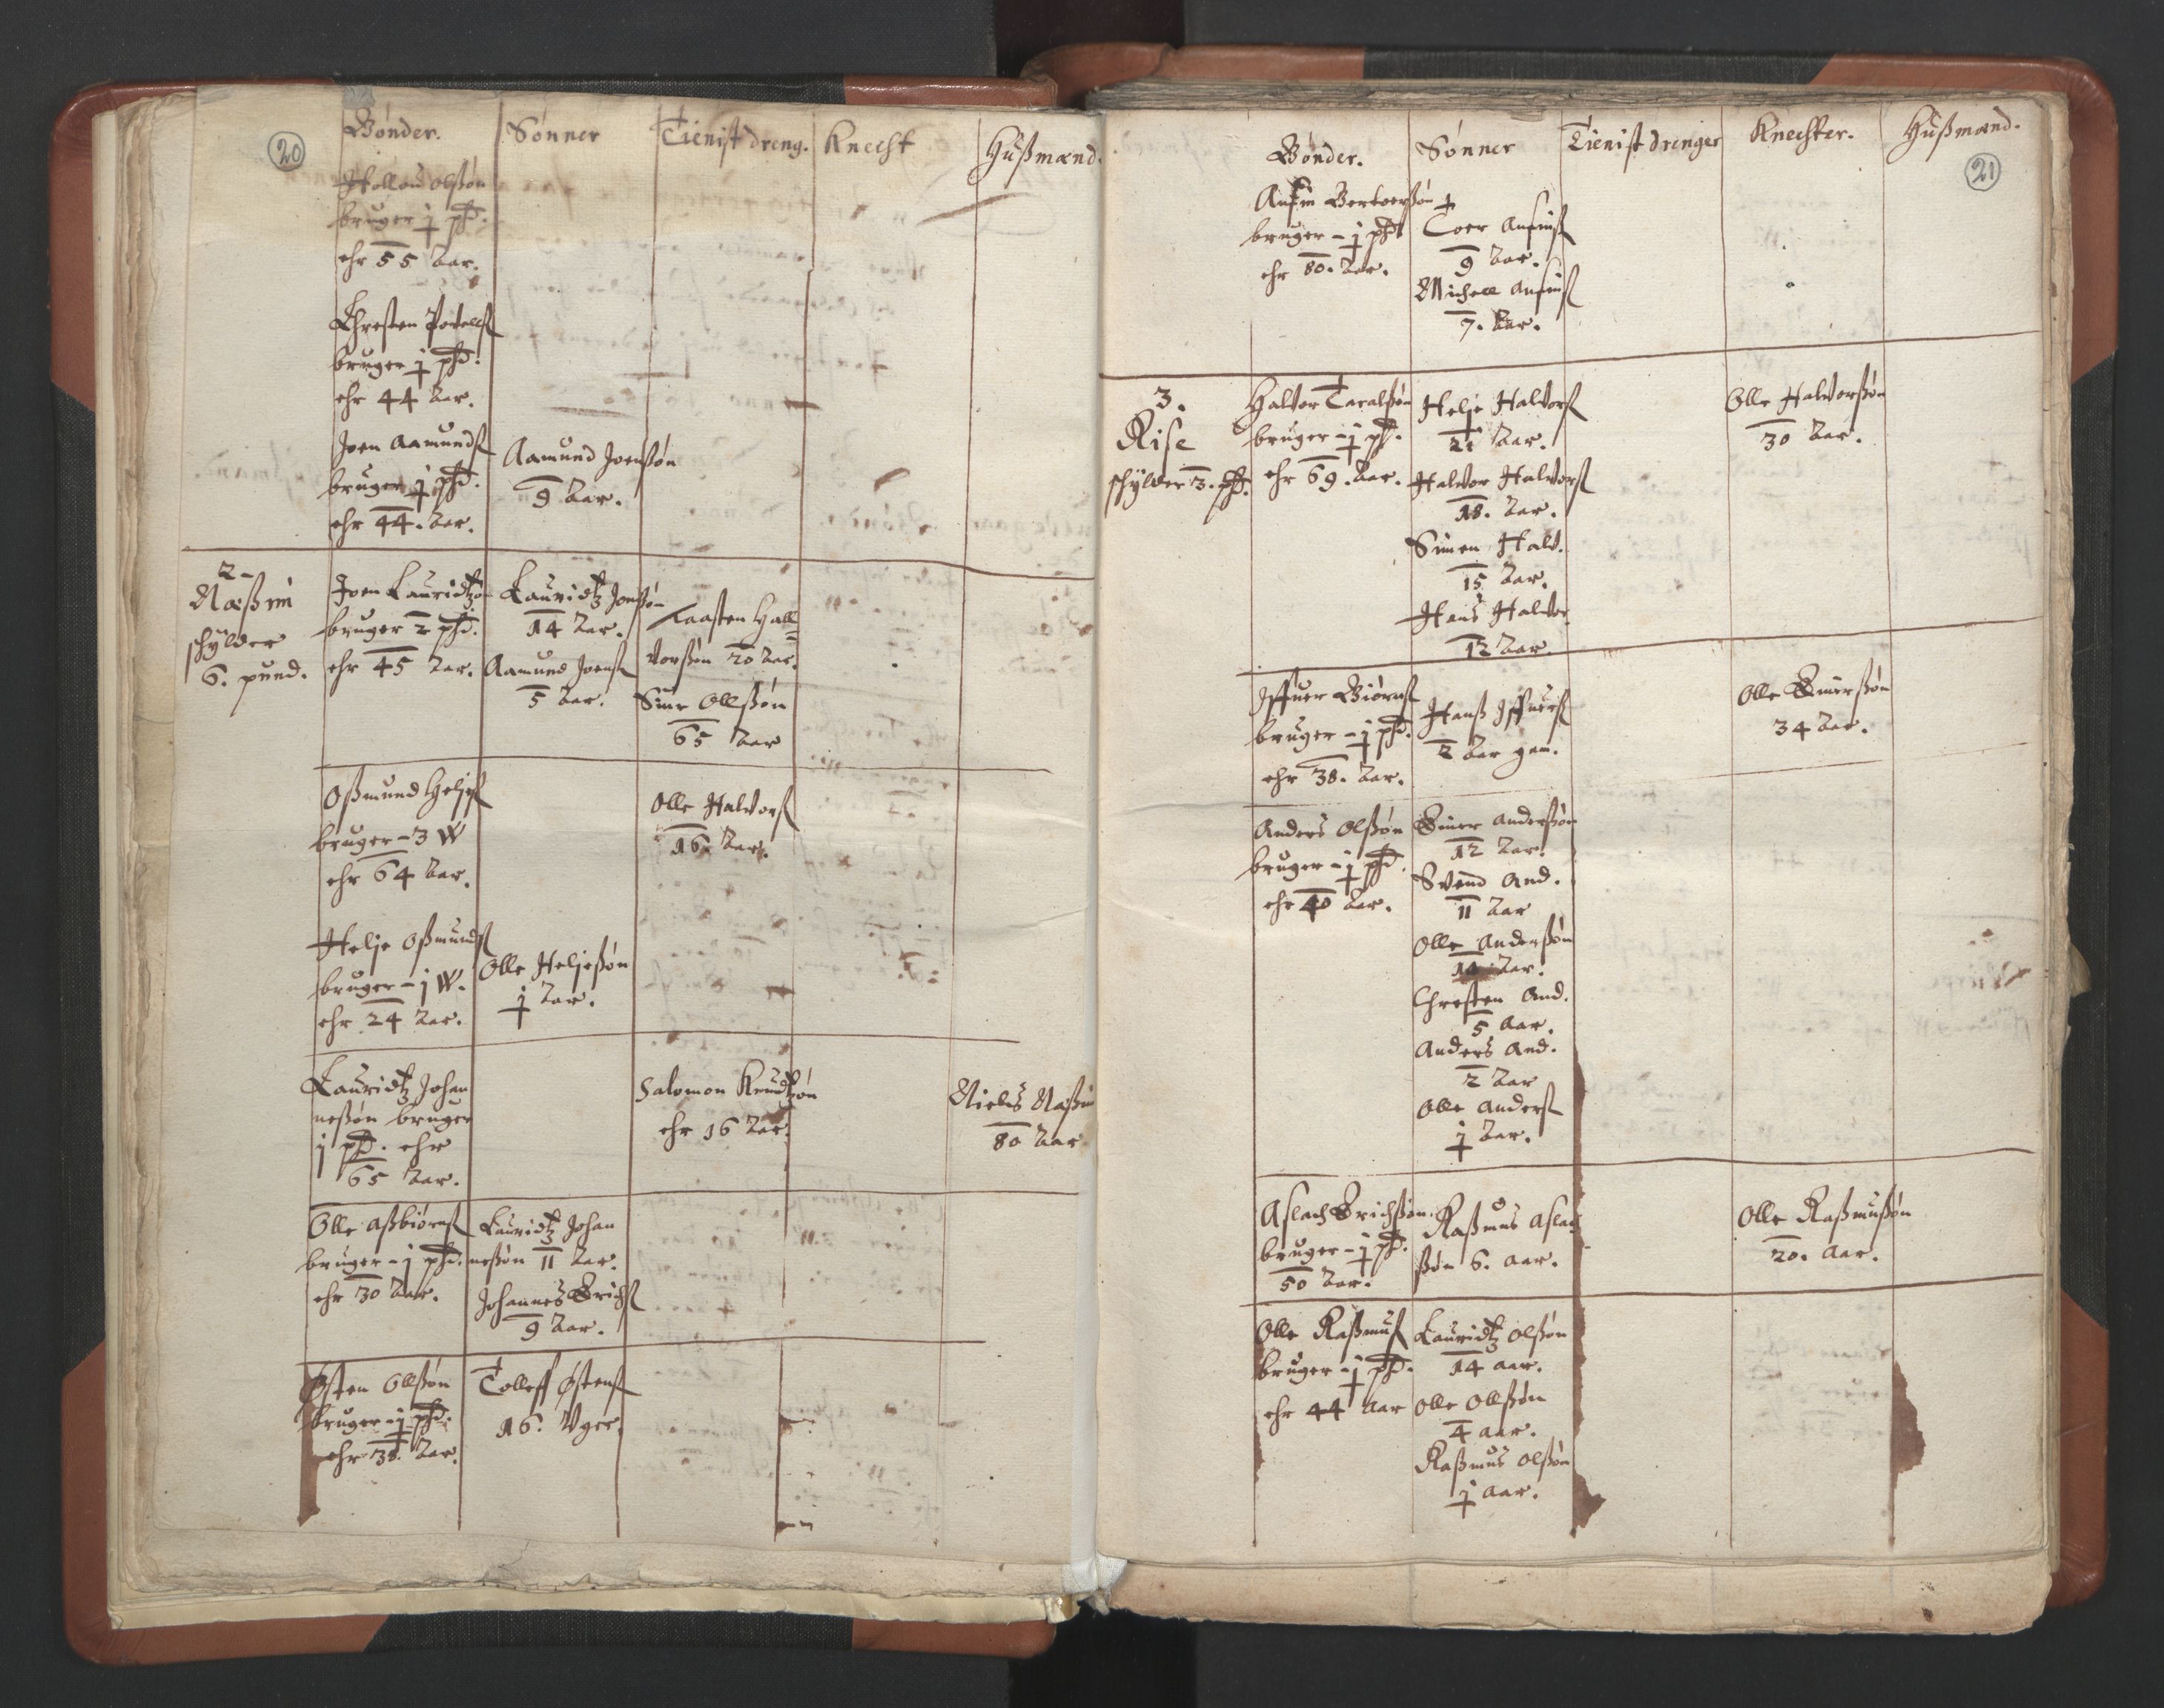 20
Bønder.
Sønner
Tienist dreng.
Knecht
Hußmænd.
olßøn
bruger j pd.
ehr 55 Aar.
Christen Povelß
bruger j pd.
ehr 44 Aar.
Joen Aamundß
bruger j pd.
ehr 44. Aar.
Aamund Joenßøn
9 Aar.
2
Næßim
schylder
6. pund.
Joen Lauridtzøn
bruger 2 pd.
ehr 45 Aar.
Lauridtz Jonßøn
14 Aar.
Aamund Joenß
5 Aar.
Taasten Hall=
vorßøn 20 Aar.
Siur Ollßøn
65 Aar
Oßmund Heljeß
bruger - 3 W
ehr 64 Aar.
Olle Halvorß
16. Aar.
Helje Oßmundß
bruger - j W.
ehr 24 Aar.
Olle Heljeßøn
j Aar.
Lauridtz Johan
neßøn bruger
j pd. ehr
65 Aar.
Salomon Knudtzøn
ehr 16 Aar.
Niels Naßim
80 Aar
Olle Aßbiørnß
bruger - j pd.
ehr 30 Aar.
Lauridtz Johan
neßøn 11 Aar.
Johannes Erichß
9 Aar.
Østen Ollßøn
bruger - j pd.
ehr 38. Aar.
Tolleff Østenß
16. Uger.
21
Bønder.
Sønner
Tienist drenger
Knechter.
Hußmænd.
Anfin
bruger - j pd
ehr 80. Aar.
Toer Anfinß
9 Aar.
Michell Anfinß
7. Aar.
3.
Rise
schylder 3. pd.
Halvor Taralßøn
bruger - j pd.
ehr 69. Aar.
Helje Halvorß
21 Aar.
Halvor Halvorß
18. Aar.
Simen Halv.
15 Aar.
Hans Halvor.
12 Aar.
Olle Halvorßøn
30 Aar.
Iffuer Biørnß
bruger - j pd.
ehr 38. Aar.
Hanß Iffuerß
2 Aar gam.
Olle Einerßøn
34 Aar.
Anders Olßøn
bruger - j pd.
ehr 40 Aar.
Einer Anderßøn
12 Aar.
Svend And.
11 Aar
Olle Anderßøn
Aar.
Christen And.
5 Aar.
Anders And.
2 Aar
Olle Anderß
j Aar.
Aslach Erichßøn.
bruger - j pd.
50 Aar.
Raßmus Aslach
ßøn 6. Aar.
Olle Raßmußøn
20. Aar.
Olle Raßmuß
bruger - j pd.
ehr 44 Aar
Lauridtz Olßøn
14 Aar.
Olle Ollßøn
4 Aar.
Raßmus Olßøn
j Aar.